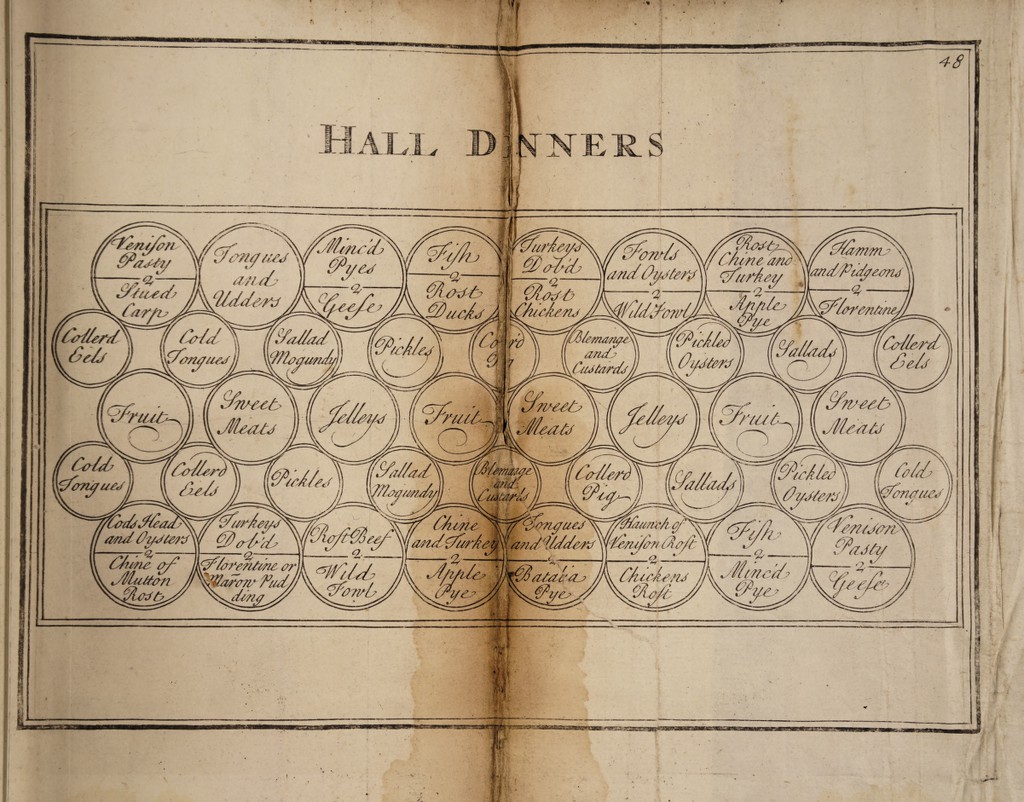 48
HALL DINNERS
Veniſon
Pasty
2
Stued
Carp
Tongues
and
Udders
Minc'd
Pyes
2
Geeſe
Fiſh
2
Rost
Ducks
Turkeys
Dob'd
2
Rost
Chickens
Fowls
and Oysters
2
Wild Fowl
Rost
Chine and
Turkey
2
Apple
Pye
Hamm
and Pidgeons
2
Florentine
Collerd
Eels
Cold
Tongues
Sallad
Mogundy
Pickles
Blemange
and
Custards
Pickled
Oysters
Sallads
Collerd
Eels
Fruit
Sweet
Meats
Jelleys
Fruit
Sweet
Meats
Jelleys
Fruit
Sweet
Meats
Cold
Tongues
Collerd
Eels
Pickles
Sallad
Mogundy
Blemange
and
Custards
Collerd
Pig
Sallads
Pickled
Oysters
Cold
Tongues
Cods Head
and Oysters
2
Chine of
Mutton
Rost
Turkeys
Dob'd
2
Florentine or
Marow Pud
ding
Roſt Beef
2
Wild
Fowl
Chine
and Turkey
2
Apple
Pye
Tongues
and Udders
2
Bata'a
Pye
Haunch of
Veniſon Roſt
2
Chickens
Roſt
Fiſh
2
Minc'd
Pye
Venison
Pasty
2
Geeſe